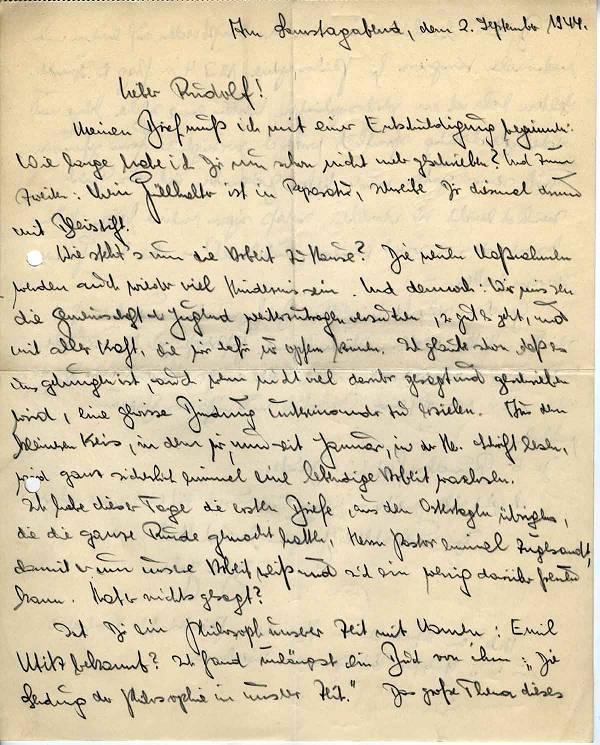 Am Samstagabend, dem 2. September 1944.
Lieber Rudolf!
Meinen Brief muß ich mit einer Entschuldigung beginnen:
Wie lange habe ich Dir nun schon nicht mehr geschrieben? Und zum
Zweiten: Mein Füllhalter ist in Reparatur, schreibe Dir diesmal drum
mit Bleistift.
Wie steht's um die Arbeit zu Hause? Die neuen Maßnahmen
werden auch wieder viel Hindernis sein. Und dennoch: Wir müssen
die Gemeinschaft der Jugend weiterzutragen versuchen, so gut es geht, und
mit aller Kraft, die wir dafür opfern können. Ich glaube schon, daß es
uns gelungen ist, auch wenn nicht viel darüber gesagt und geschrieben
wird, eine gewisse Bindung untereinander zu erzielen. Aus dem
kleinen Kreis, in dem wir, nun seit Januar, in der Hl. Schrift lesen,
wird ganz sicherlich einmal eine lebendige Arbeit wachsen.
Ich habe dieser Tage die ersten Briefe, aus den Ostertagen übrigens,
die die ganze Runde gemacht hatten, Herrn Pastor einmal zugesandt,
damit er um unsere Arbeit weiß und sich ein wenig darüber freuen
kann. Hat er nichts gesagt?
Ist Dir ein Philosoph unserer Zeit mit Namen: Emil
bekannt? Ich fand unlängst ein Buch von ihm: „Die
Sendung der Philosophie in unserer Zeit." Das große Thema dieses